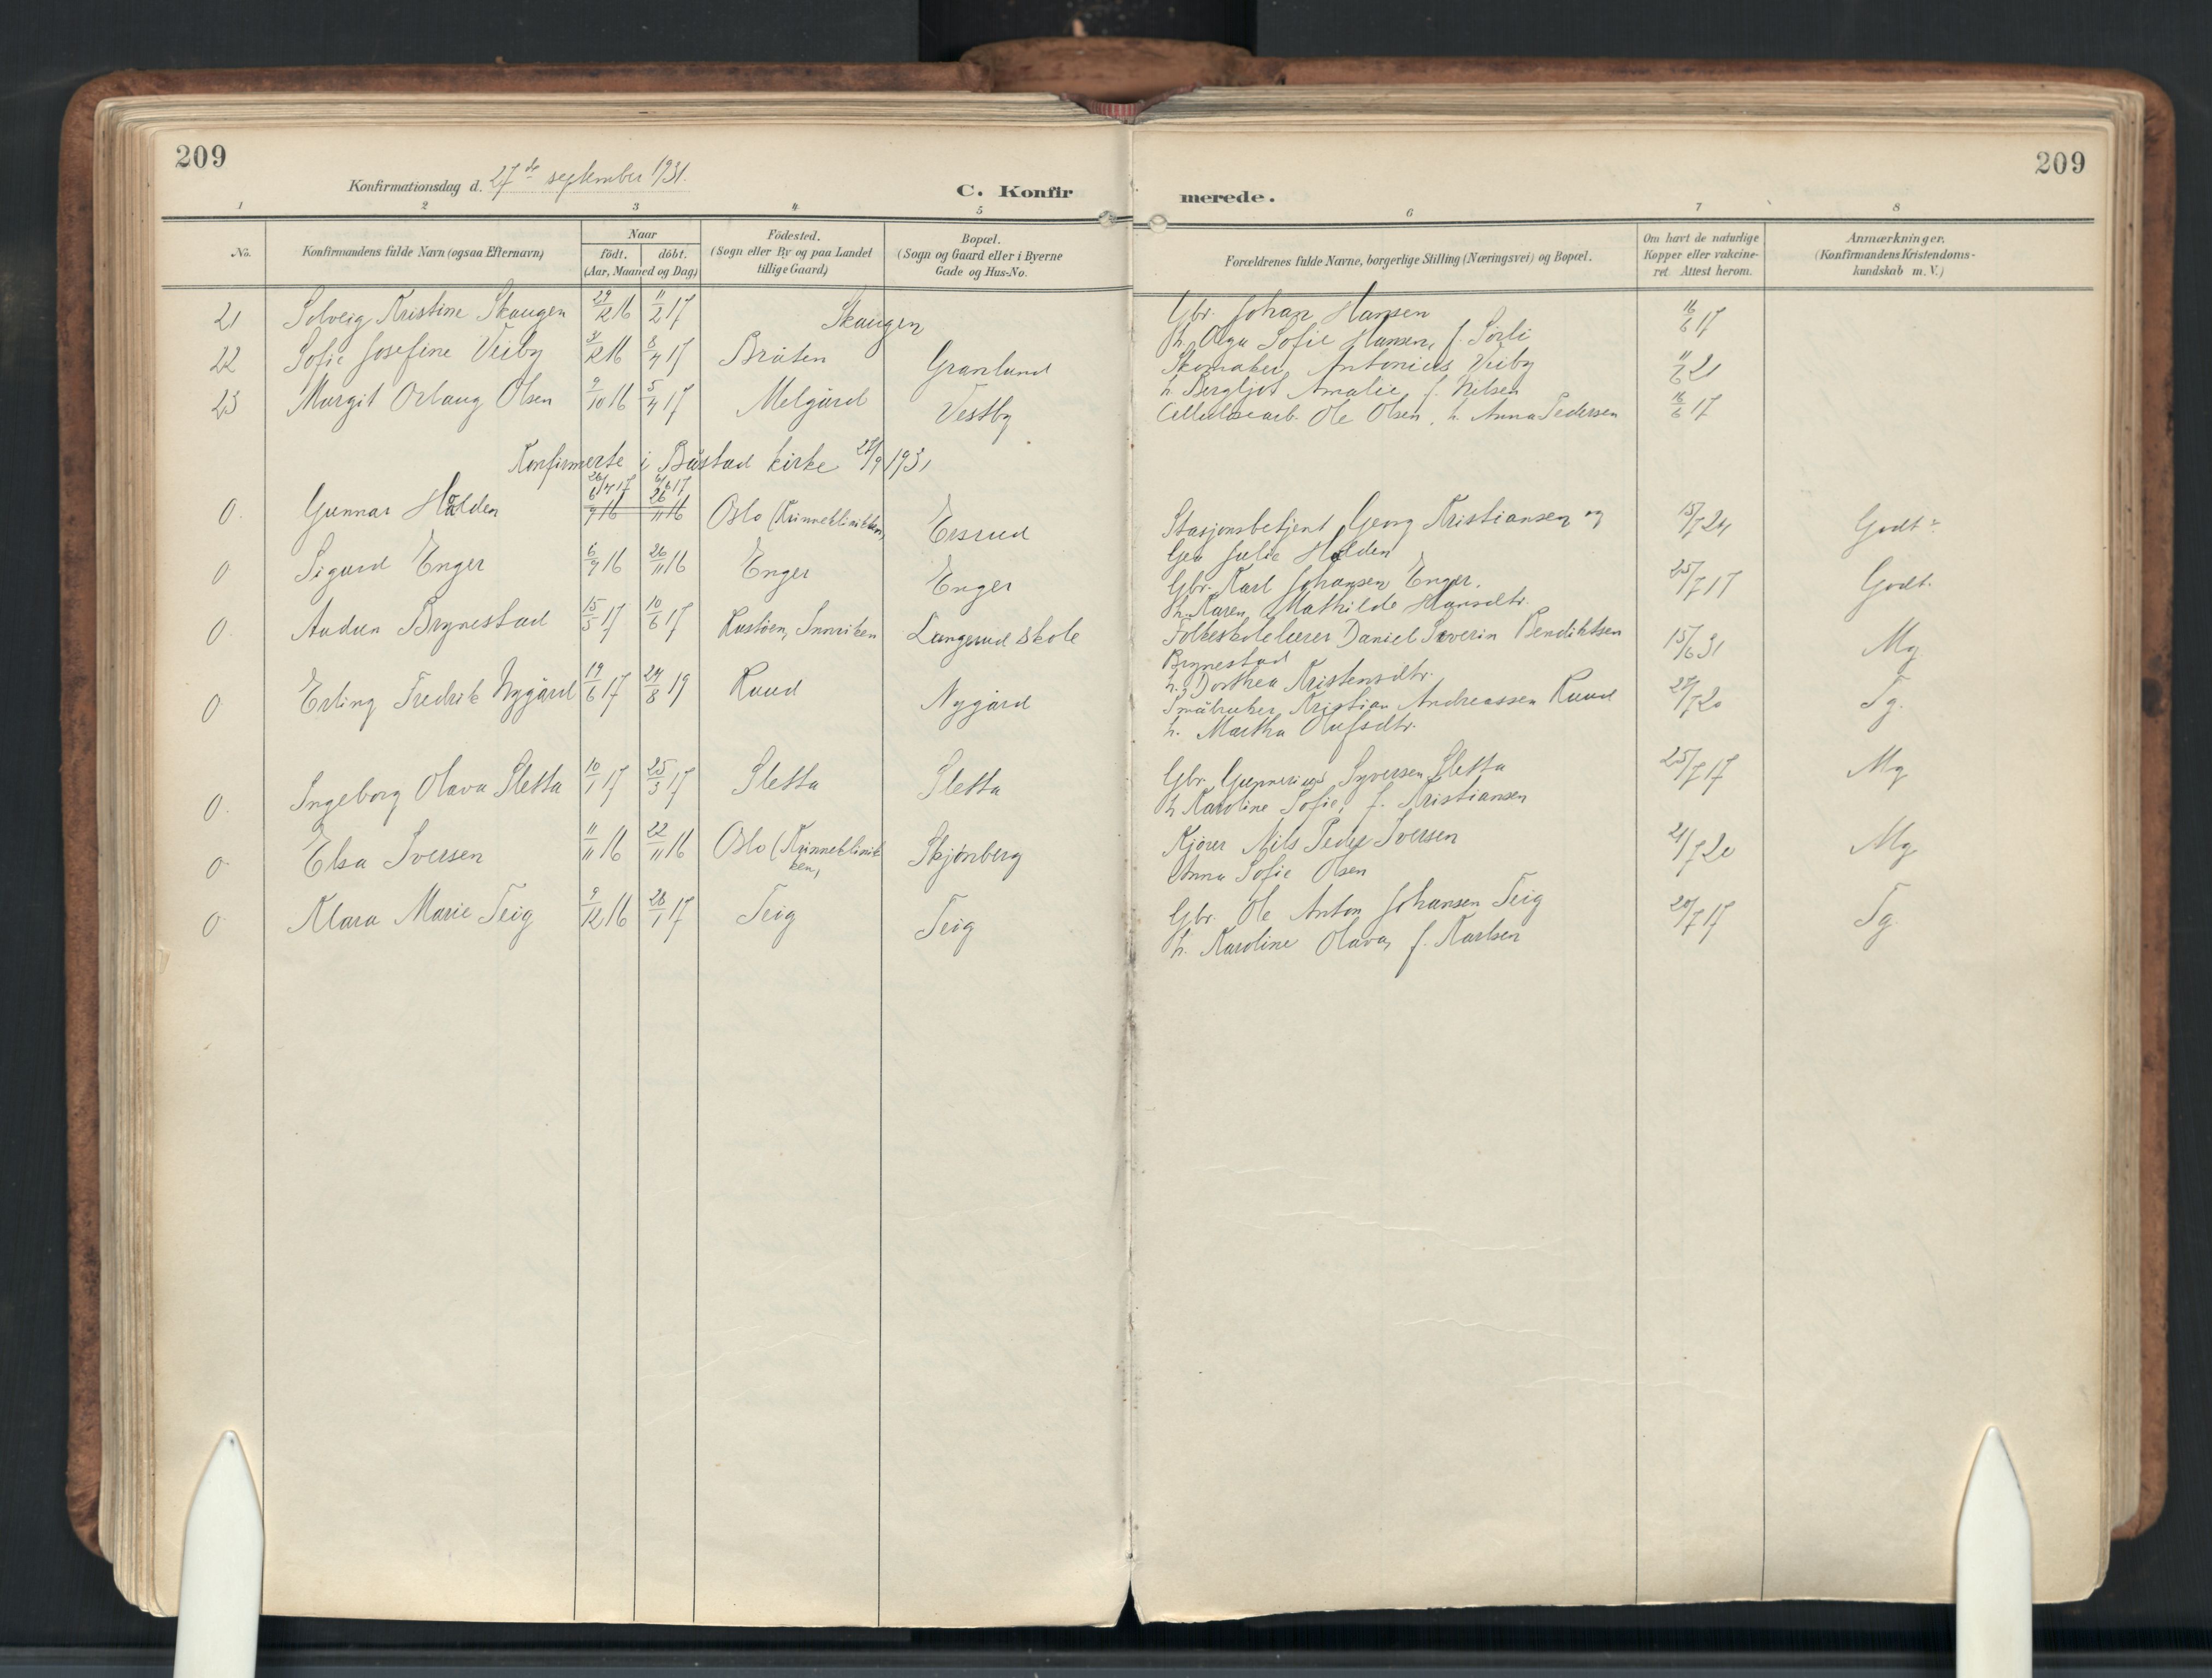 209
209
Konfirmationsdag d. 27de september 1931.
C. Konfirmerede.
1 2 3 4 5 6 7 8
No.
Konfirmandens fulde Navn (ogsaa Efternavn)
Naar
födt. döbt.
(Aar, Maaned og Dag)
Födested.
(Sogn eller By og paa Landet
tillige Gaard)
Bopæl.
(Sogn og Gaard eller i Byerne
Gade og Hus-No.
Forældrenes fulde Navne, borgerlige Stilling (Næringsvei) og Bopæl.
Om havt de naturlige
Kopper eller vakcine-
ret Attest herom.
Anmærkninger.
(Konfirmandens Kristendoms-
kundskab m. V.)
21 Solveig Kristine Skaugen 29/12 16 11/2 17 Skaugen Gbr. Johan Hansen 16/6 17
h. Olga Sofie Hansen, f. Sørli
22 Sofie Josefine Veiby 3/12 16 8/4 17 Bråten Granlund Skomaker Antonius Veiby 11/6 21
h. Bergljot Amalie f. Nilsen
23 Margit Oslaug Olsen 9/10 16 5/4 17 Melgård Vestby Cellulosearb. Ole Olsen, h. Anna Pedersen 16/6 17
Konfirmerte i Båstad kirke 27/9 1931
26/4 17 6/6 17
0. Gunnar Halden 6/9 16 26/11 16 Oslo (Kvinneklinikken) Ersrud Stasjonsbetjent Georg Kristiansen og 15/7 24 Godt
Gea Julie Halden
0 Sigurd Enger 6/9 16 26/11 16 Enger Enger Gbr. Karl Johansen Enger. 25/7 17 Godt.
h. Karen Mathilde Hansdtr.
0. Audun Brynestad 15/5 17 10/6 17 Rustöen, Langerud skole Folkeskolelærer Daniel Severin Bendiktsen 15/6 31 Mg
Brynestad
h. Dorthea Kristensdtr.
0 Erling Fredrik Nygård 19/6 17 24/8 19 Ruud Nygård Småbruker Kristian Andreassen Ruud 27/7 20 Tg.
h. Martha Olufsdtr.
0. Ingeborg Olava Sletta 10/1 17 25/3 17 Sletta Sletta Gbr. Gunnerius Syversen Sletta 25/7 17 Mg
h Karoline Sofie, f. Kristiansen
0 Elsa Iversen 11/11 16 22/11 16 Oslo (Kvinneklinik Skjønberg Kjører Nils Peder Iversen 21/7 20 Mg
ken)
Anna Sofie Olsen
0 Klara Marie Teig 9/12 16 28/1 17 Teig Teig Gbr. Ole Anton Johansen Teig 20/7 17 Tg.
h. Karoline Olava, f. Karlsen